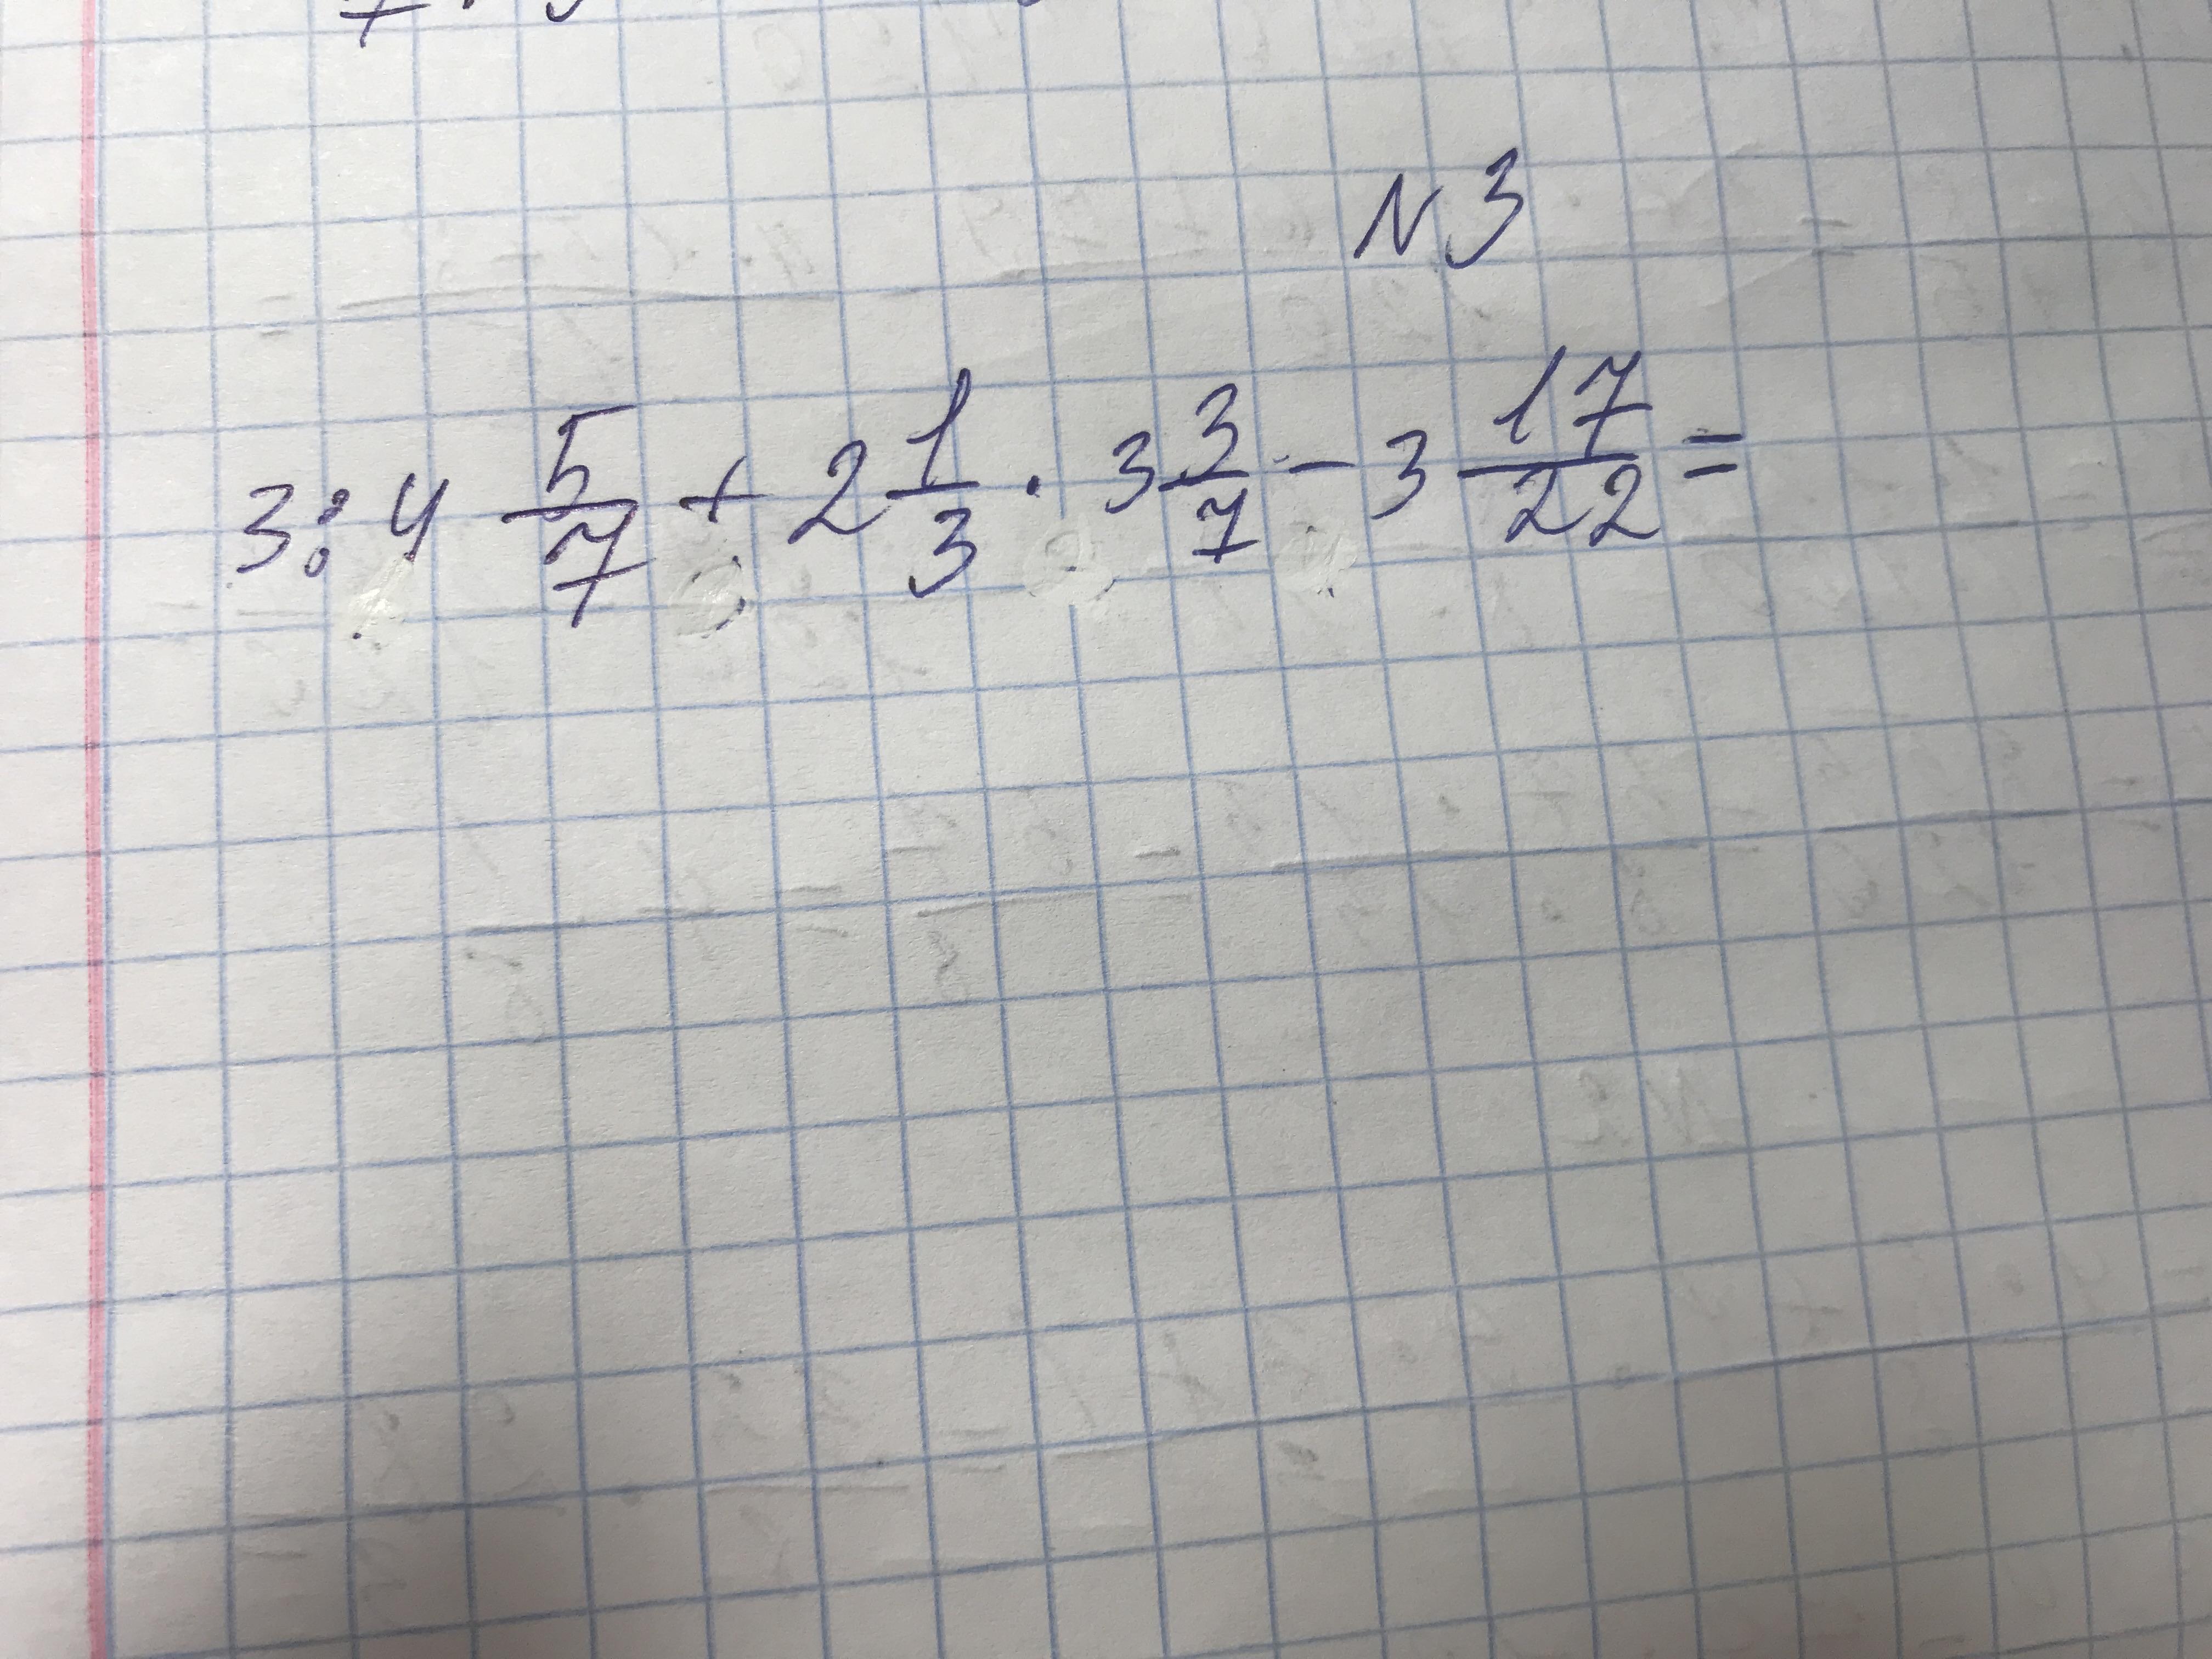 N 3
3 : 4 5/7 + 2 1/3 · 3 3/7 - 3 17/22 =